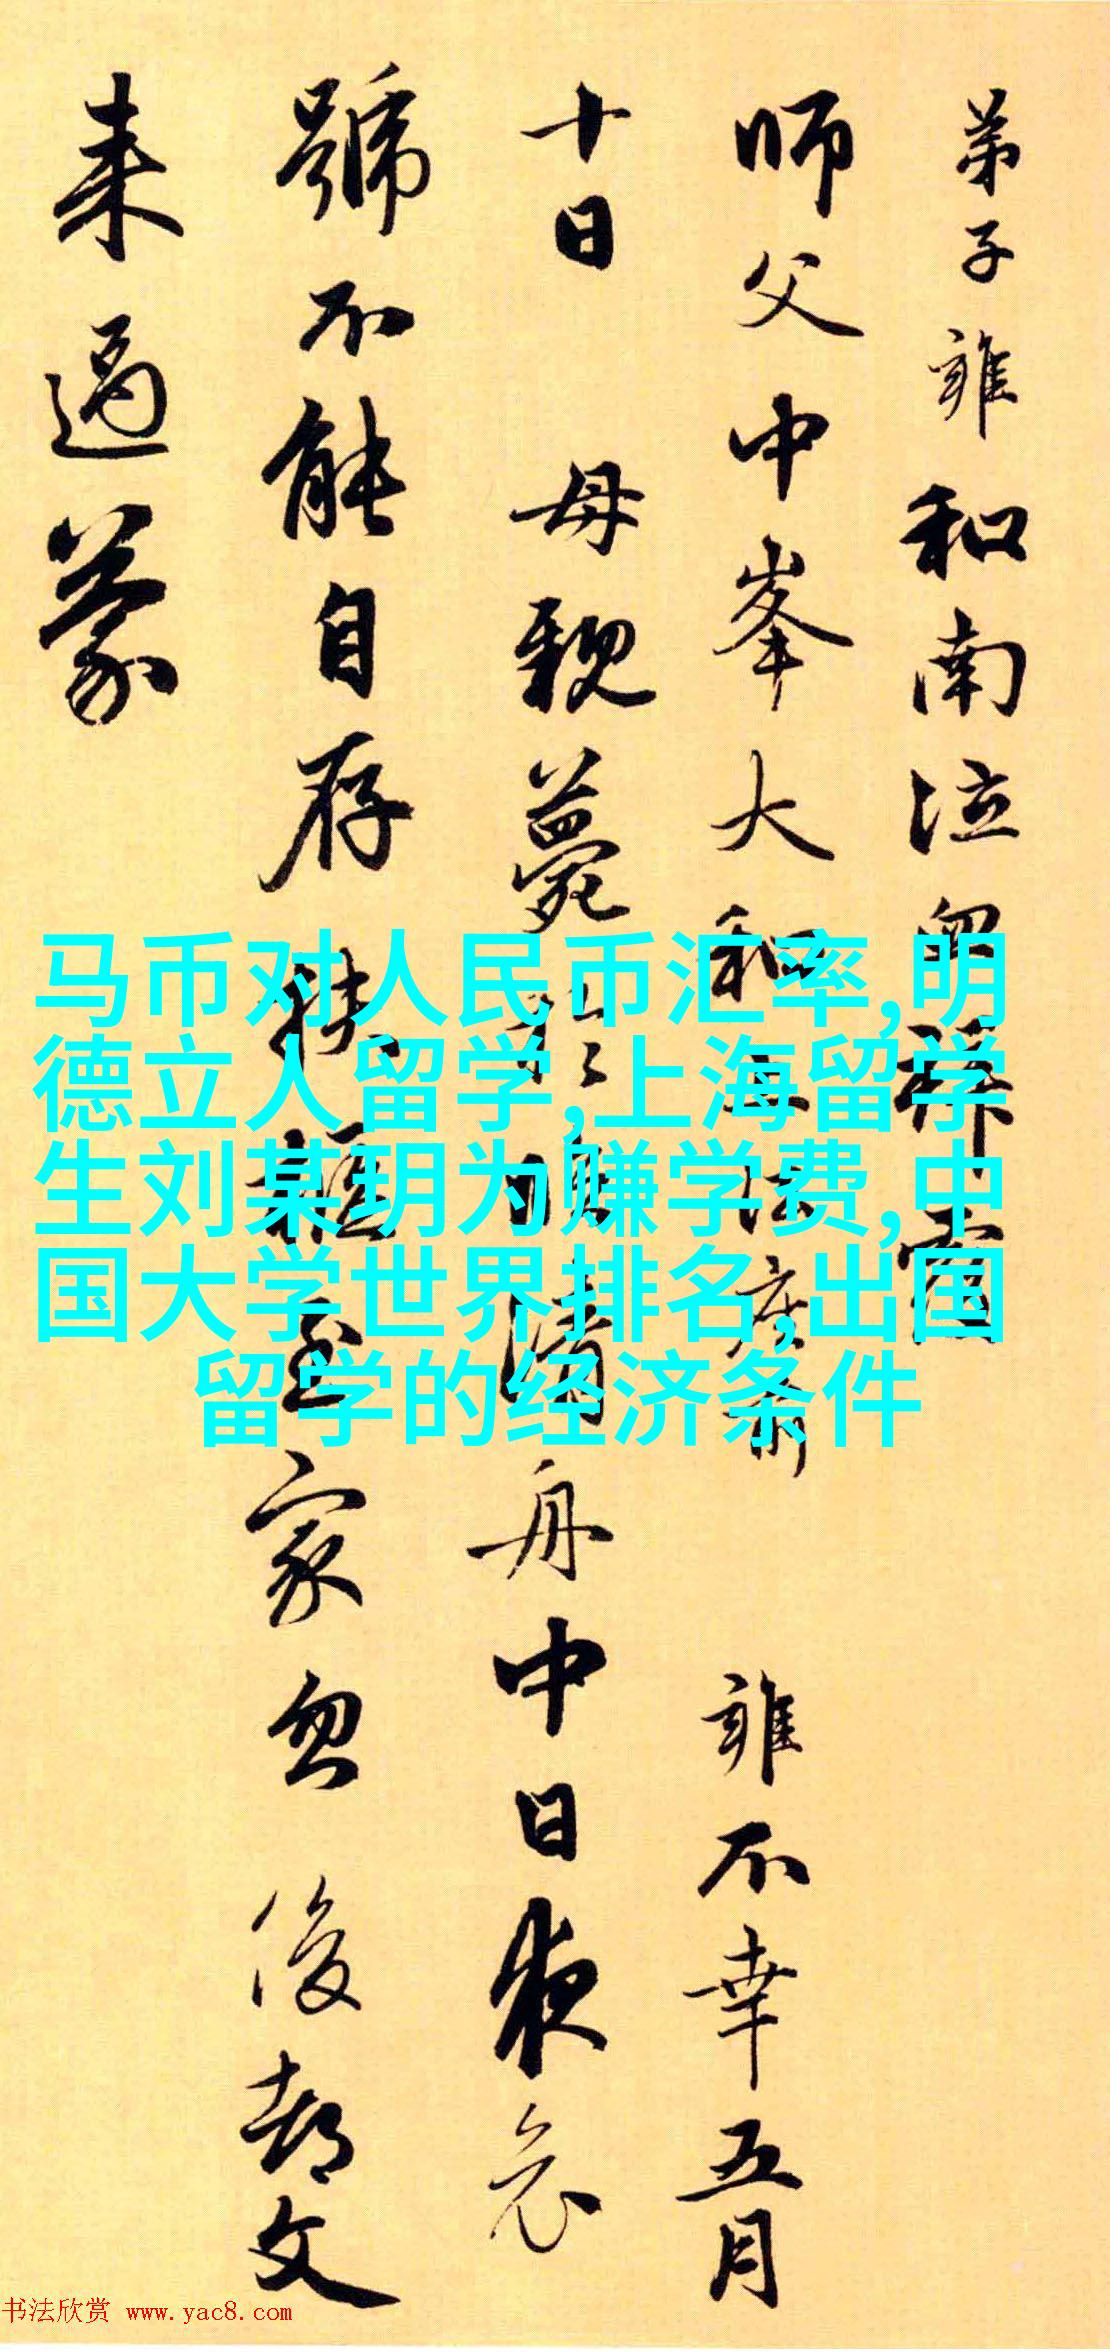 弟子雍和南泣血拜
師父中峯大和上
雍不幸五月
十日 母親薨
舟中日夜哀
號不能自存扶
至家忽後却文
来過蒙
马币对人民币汇率,明
德立人留学,上海留学
生刘某玥为赚学费,中
国大学世界排名,出国
留学的经济条件
书法欣赏 www.yac8.com